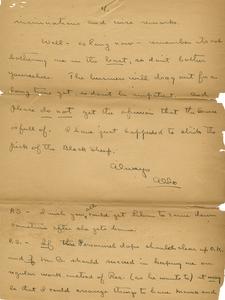 Well - as long now - remember its not
bothering me in the least, so don't bother
yourselves. The business will drag out for a
long time yet, so don't be impatient. And
Please do not get the opinion that the
is full of. I have just happened to strike the
pick of the Black Sheep.
Always
Aldo
P.S. - I wish you could get to come down
sometime after she gets home.
P.S. - If the Personnel dope should clear up O.K.
and if should succeed in keeping me on
regular work instead of Rec. (as he wrote) it may
be that I could arrange things to have Mama and